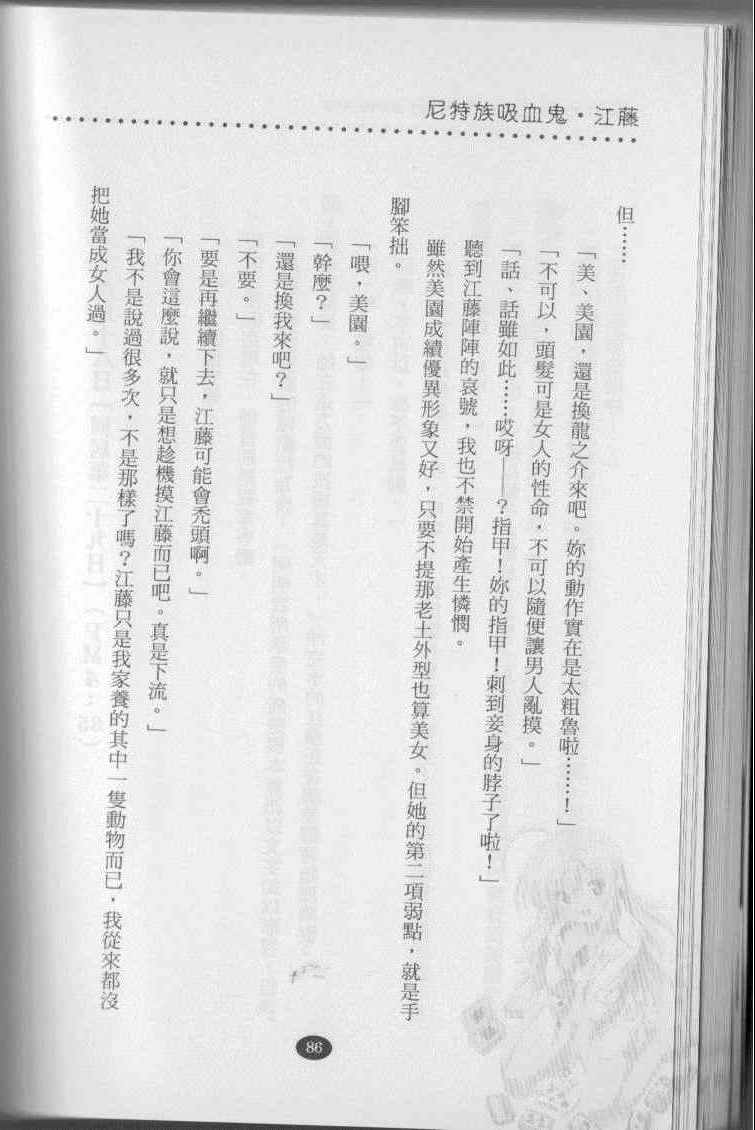 尼特族吸血鬼・江藤
但……
「美、美園，還是換龍之介來吧。妳的動作實在是太粗魯啦……！」
「不可以，頭髮可是女人的性命，不可以隨便讓男人亂摸。」
「話、話雖如此……哎呀——？指甲！妳的指甲！刺到妾身的脖子了啦！」
聽到江藤陣陣的哀號，我也不禁開始產生憐憫。
雖然美園成績優異形象又好，只要不提那老土外型也算美女。但她的第二項弱點，就是手
腳笨拙。
「喂，美園。」
「幹麼？」
「還是換我來吧？」
「不要。」
「要是再繼續下去，江藤可能會禿頭啊。」
「你會這麼說，就只是想趁機摸江藤而已吧。真是下流。」
「我不是說過很多次，不是那樣了嗎？江藤只是我家養的其中一隻動物而已，我從來都沒
把她當成女人過。」
86